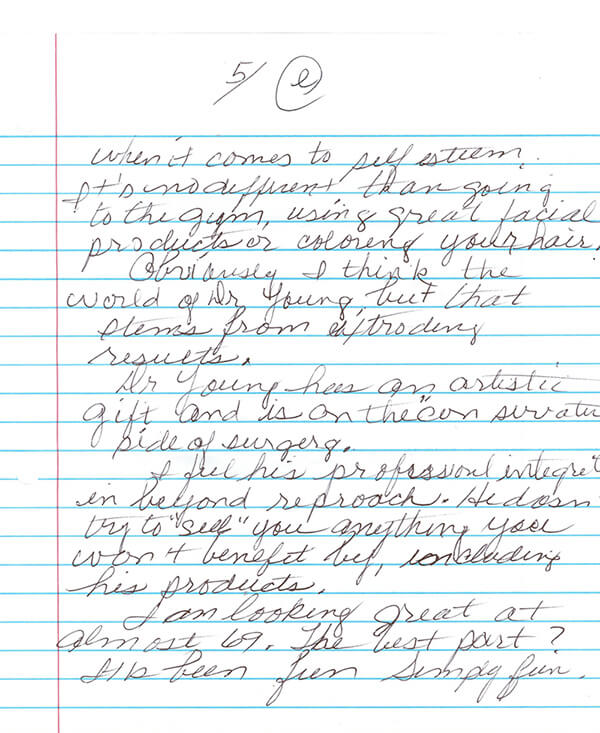 5/ e
when it comes to self esteem.
It's no different than going
to the gym, using great facial
products or coloring your hair.
Obviously I think the
world of Dr Young, but that
stems from
results.
Dr Young has an artistic
gift and is on the "con survative
side of surgery.
I feel his professoul integret
in beyond reproach. He doesn
try to "sell" you anything you
won't benefit by, including
his products.
I am looking great at
almost 69. The best part?
It's been fun simply fun.